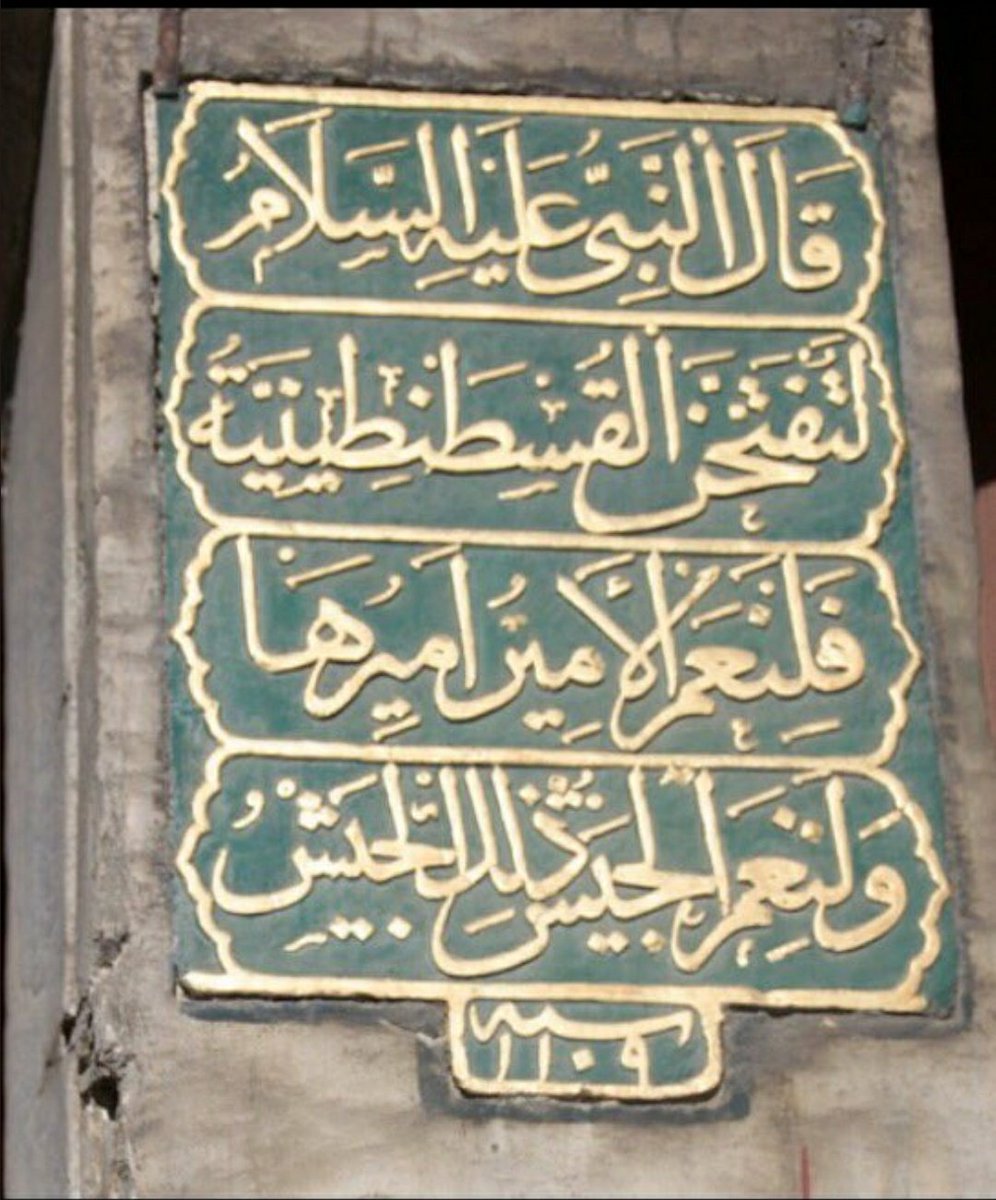 قَالَ النَّبِىُّ عَلَيْهِ السَّلَامُ
لَتُفْتَحَنَّ الْقُسْطَنْطِينِيَّةُ
فَلَنِعْمَ الْأَمِيرُ اَمِيرُهَا
وَلَنِعْمَ الْجَيْشُ ذٰلِكَ الْجَيْشُ
سنه
١١٠٩